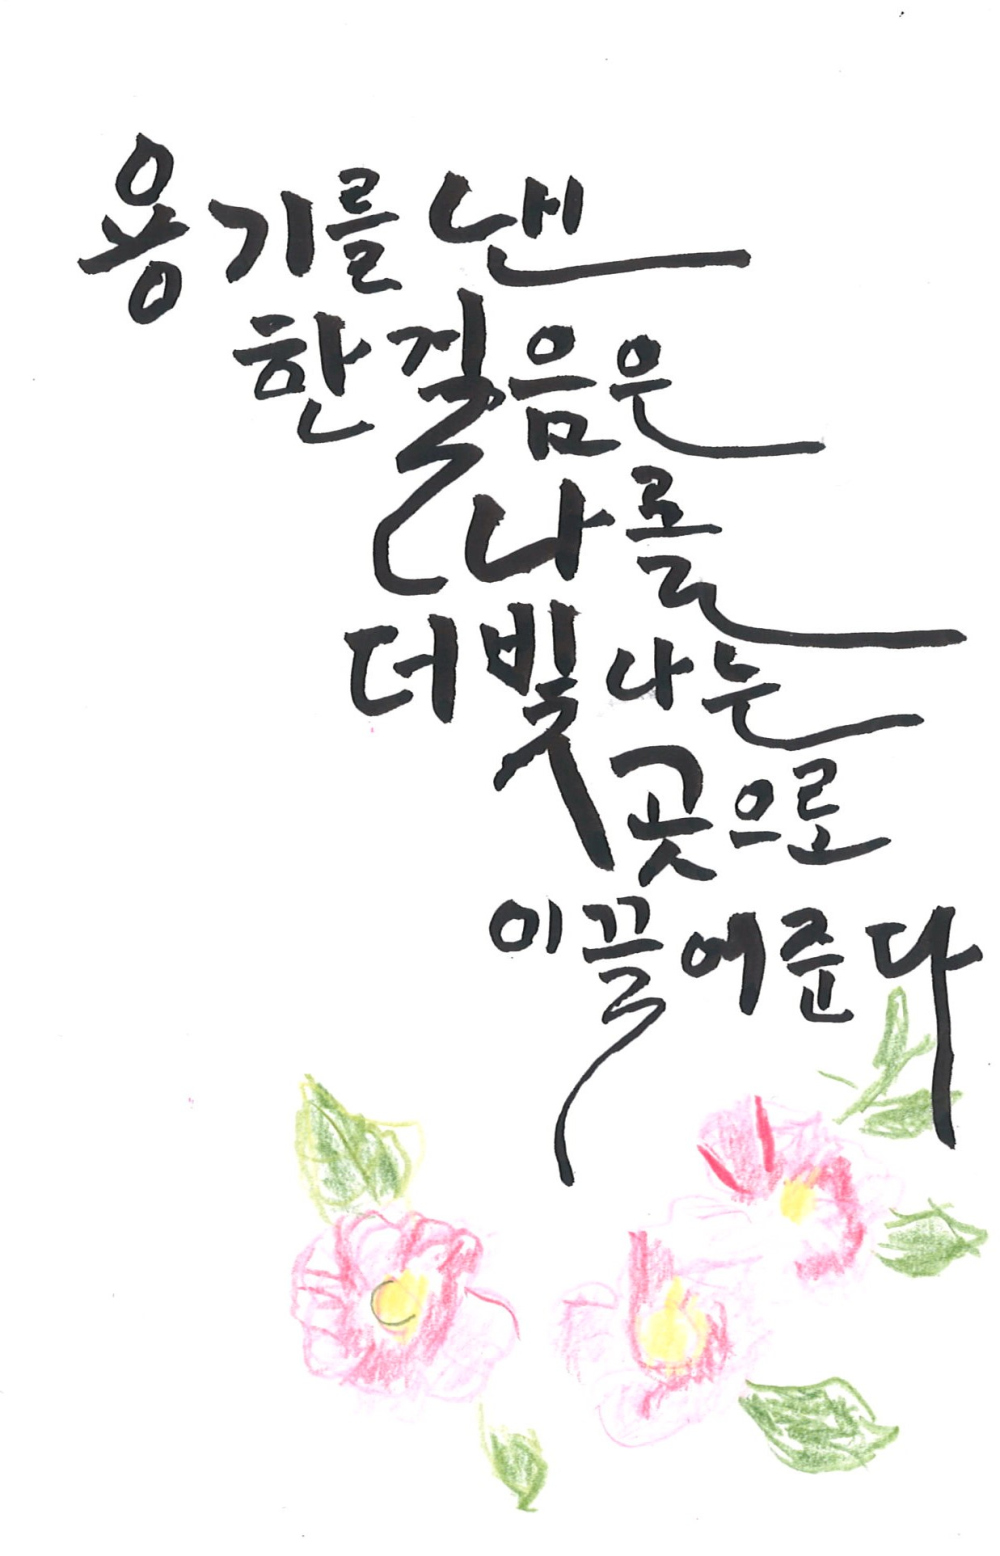 용기를 낸
한 걸음은
나를
더 빛나는
곳으로
이끌어준다